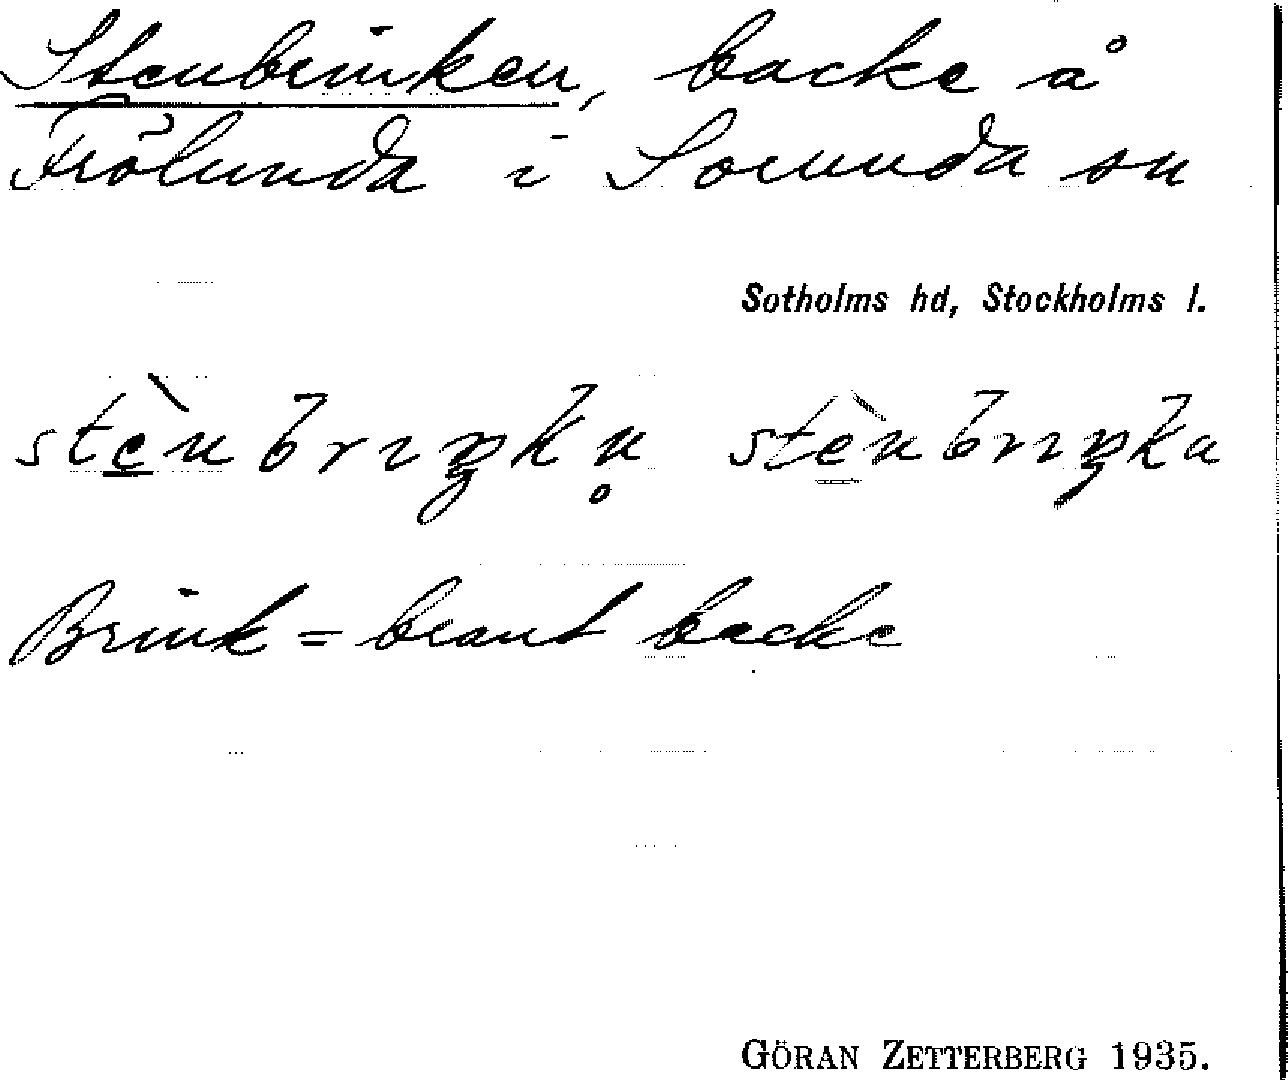 Stenbrinken, backe å
Frölunda i Sorunda sn
Sotholms hd, Stockholms l.
stè̠nbrıŋkn̥ stè̠nbrıŋka
Brink = brant backe
GÖRAN ZETTERBERG 1935.